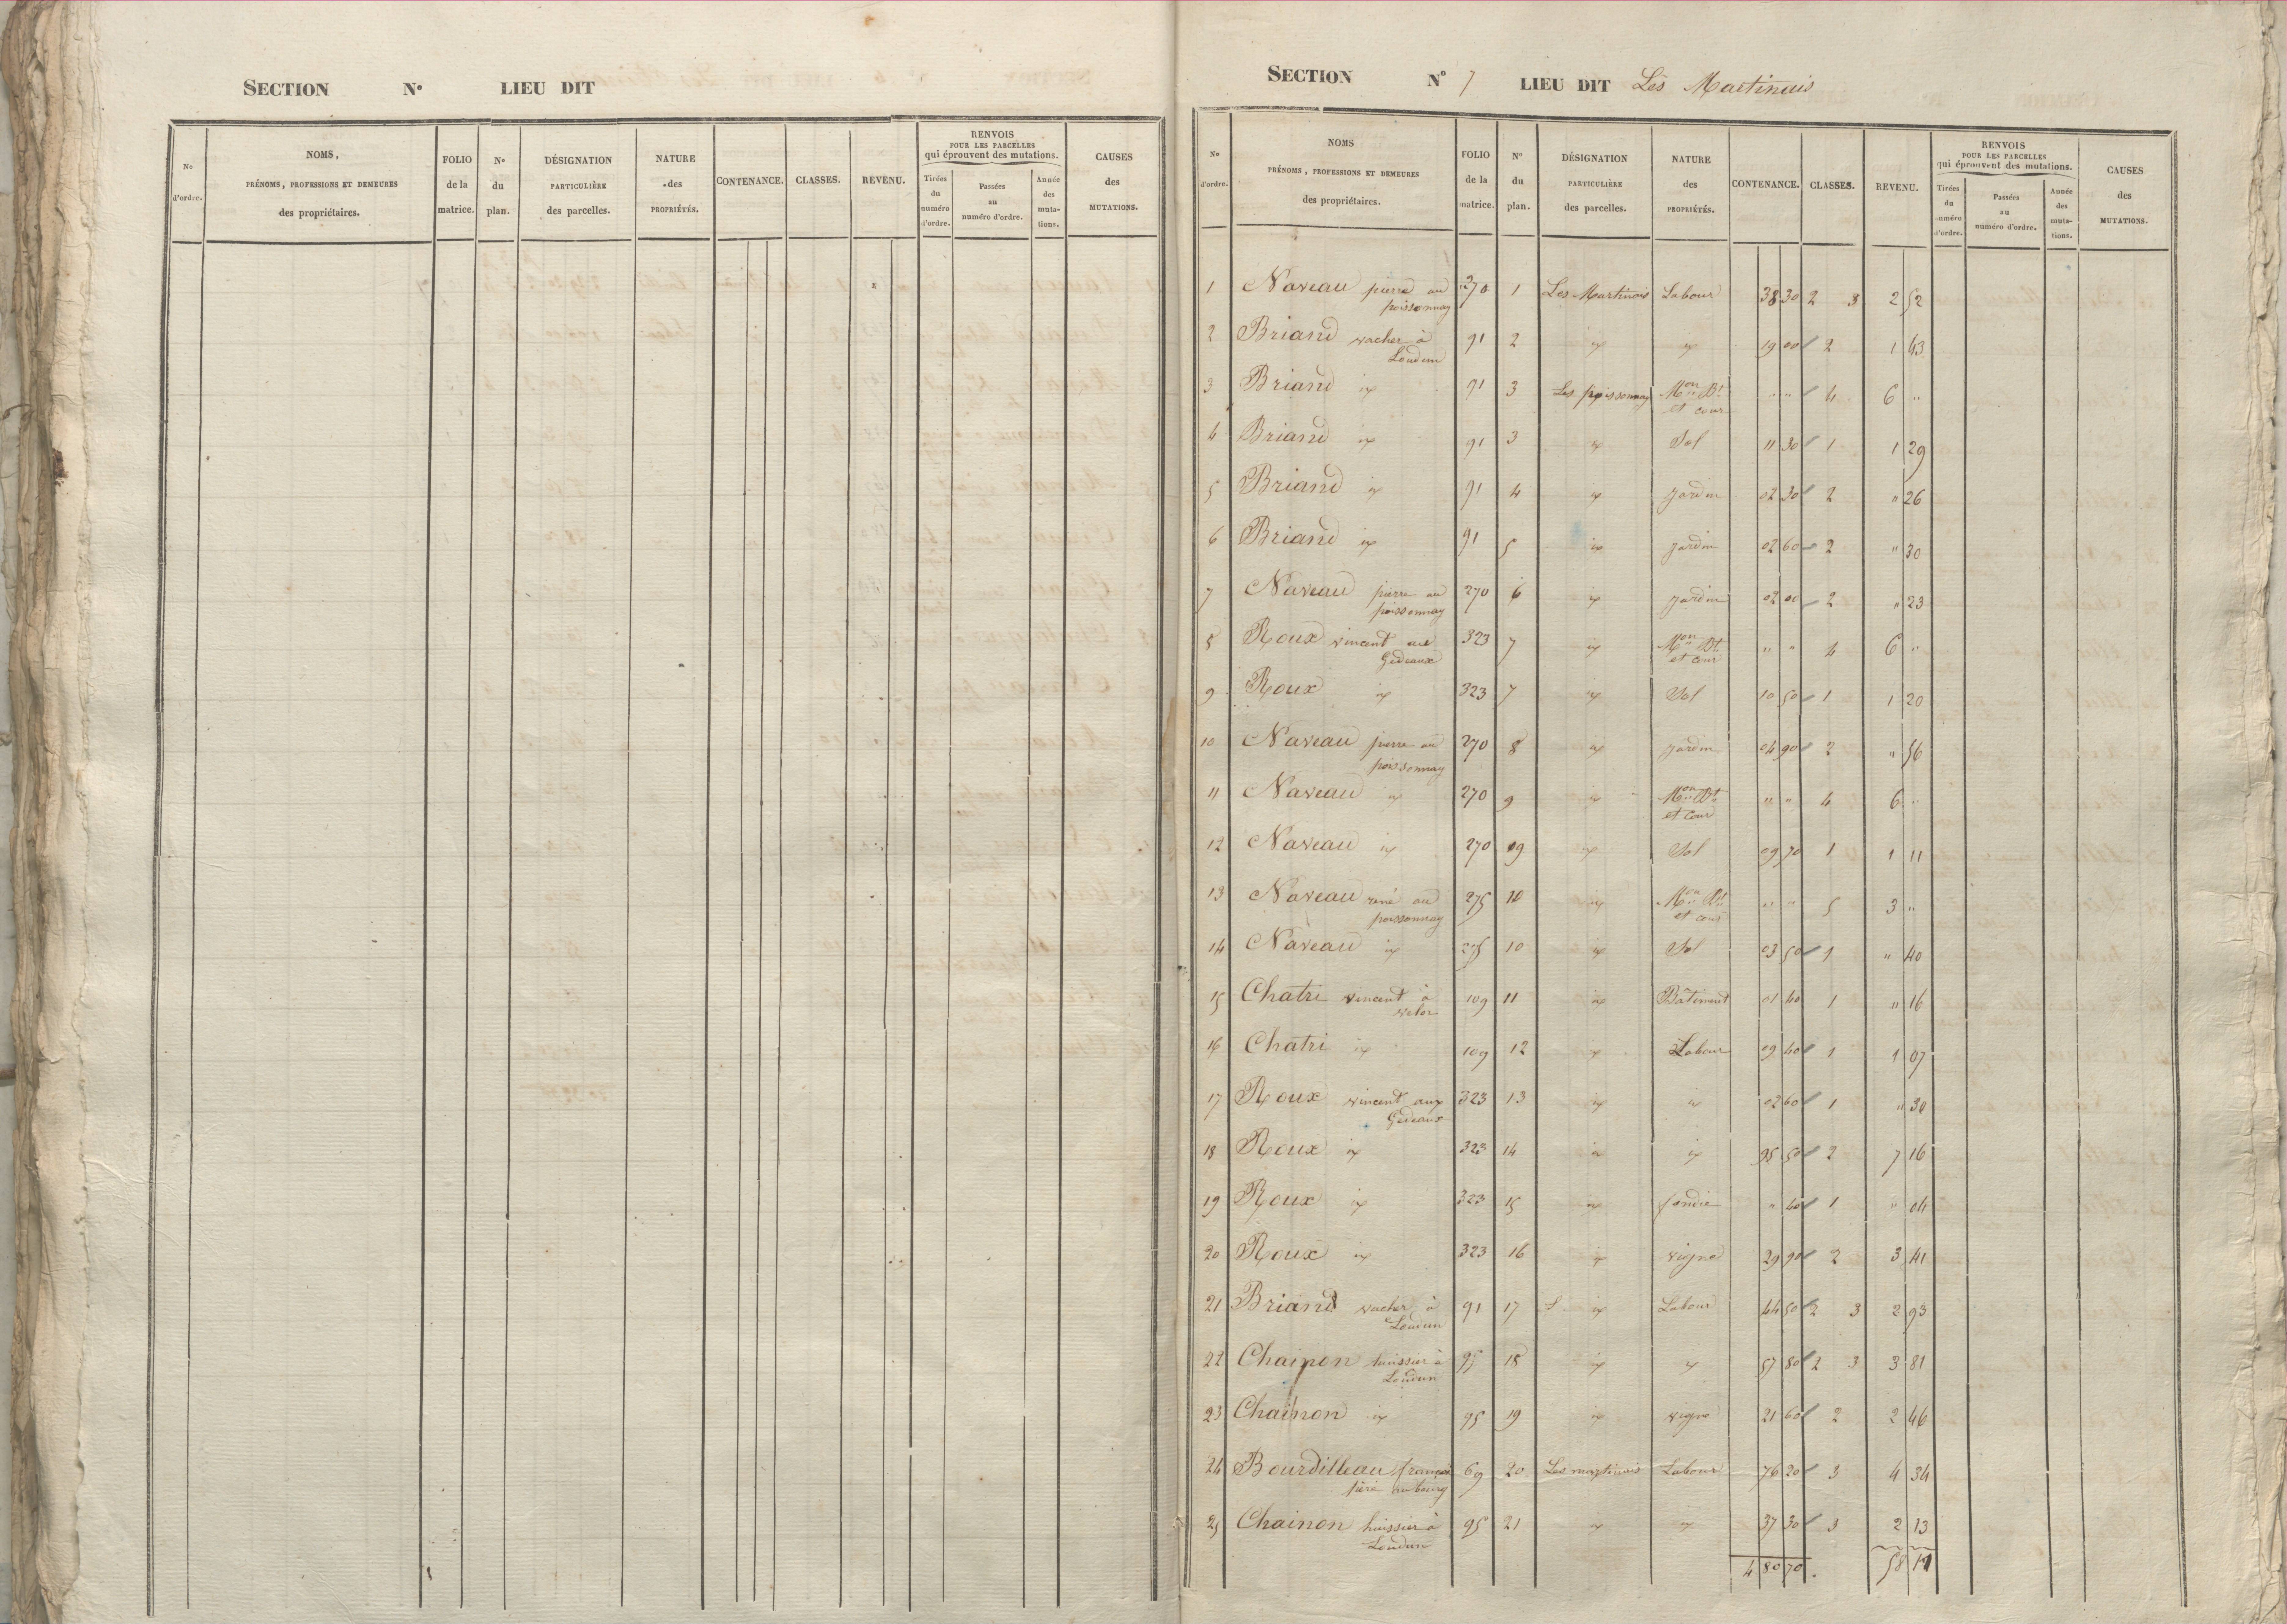 SECTION N° LIEU DIT
N° d'ordre.
NOMS, PRÉNOMS, PROFESSIONS ET DEMEURES des propriétaires.
FOLIO de la matrice.
N° du plan.
DÉSIGNATION PARTICULIÈRE des parcelles.
NATURE des PROPRIÉTÉS.
CONTENANCE.
CLASSES.
REVENU.
RENVOIS POUR LES PARCELLES qui éprouvent des mutations.
Tirées du numéro d'ordre.
Passées au numéro d'ordre.
Année des mutations.
CAUSES des MUTATIONS.
SECTION N° 7 LIEU DIT Les Martinais
N° d'ordre.
NOMS PRÉNOMS, PROFESSIONS ET DEMEURES des propriétaires.
FOLIO de la matrice.
N° du plan.
DÉSIGNATION PARTICULIÈRE des parcelles.
NATURE des PROPRIÉTÉS.
CONTENANCE.
CLASSES.
REVENU.
RENVOIS POUR LES PARCELLES qui éprouvent des mutations.
Tirées du numéro d'ordre.
Passées au numéro d'ordre.
Année des mutations.
CAUSES des MUTATIONS.
1 Naveau pierre au poissonnay 270 1 Les Martinois Labour 38 30 2 3 2 52
2 Briand vacher à Loudun 91 2 id id 19 00 2 1 43
3 Briand id 91 3 Les poissonnay Mon Bt et cour " " 4 6 "
4 Briand id 91 3 id Sol 11 30 1 1 29
5 Briand id 91 4 id jardin 02 30 2 " 26
6 Briand id 91 5 id jardin 02 60 2 " 30
7 Naveau pierre au poissonnay 270 6 id jardin 02 00 2 " 23
8 Roux vincent aux Gedeaux 323 7 id Mon Bt et cour " " 4 6 "
9 Roux id 323 7 id Sol 10 50 1 1 20
10 Naveau pierre au poissonnay 270 8 id jardin 04 90 2 " 56
11 Naveau id 270 9 id Mon Bt et cour " " 4 6 "
12 Naveau id 270 9 id Sol 09 70 1 1 11
13 Naveau rené au poissonnay 275 10 id Mon Bt et cour " " 5 3 "
14 Naveau id 275 10 id Sol 03 50 1 " 40
15 Chatri vincent à velor 109 11 id Bâtiment 01 40 1 " 16
16 Chatri id 109 12 id Labour 09 40 1 1 07
17 Roux vincent aux Gedeaux 323 13 id id 02 60 1 " 30
18 Roux id 323 14 id id 95 50 2 7 16
19 Roux id 323 15 id fondis " 40 1 " 04
20 Roux id 323 16 id vigne 29 90 2 3 41
21 Briand vacher à Loudun 91 17 id Labour 44 50 2 3 2 93
22 Chainon huissier à Loudun 95 18 id id 57 80 2 3 3 81
23 Chainon id 95 19 id vigne 21 60 2 2 46
24 Bourdilleau françois père au bourg 69 20 Les martinais Labour 76 20 3 4 34
25 Chainon huissier à Loudun 95 21 id id 37 30 3 2 13
4 80 70 58 11